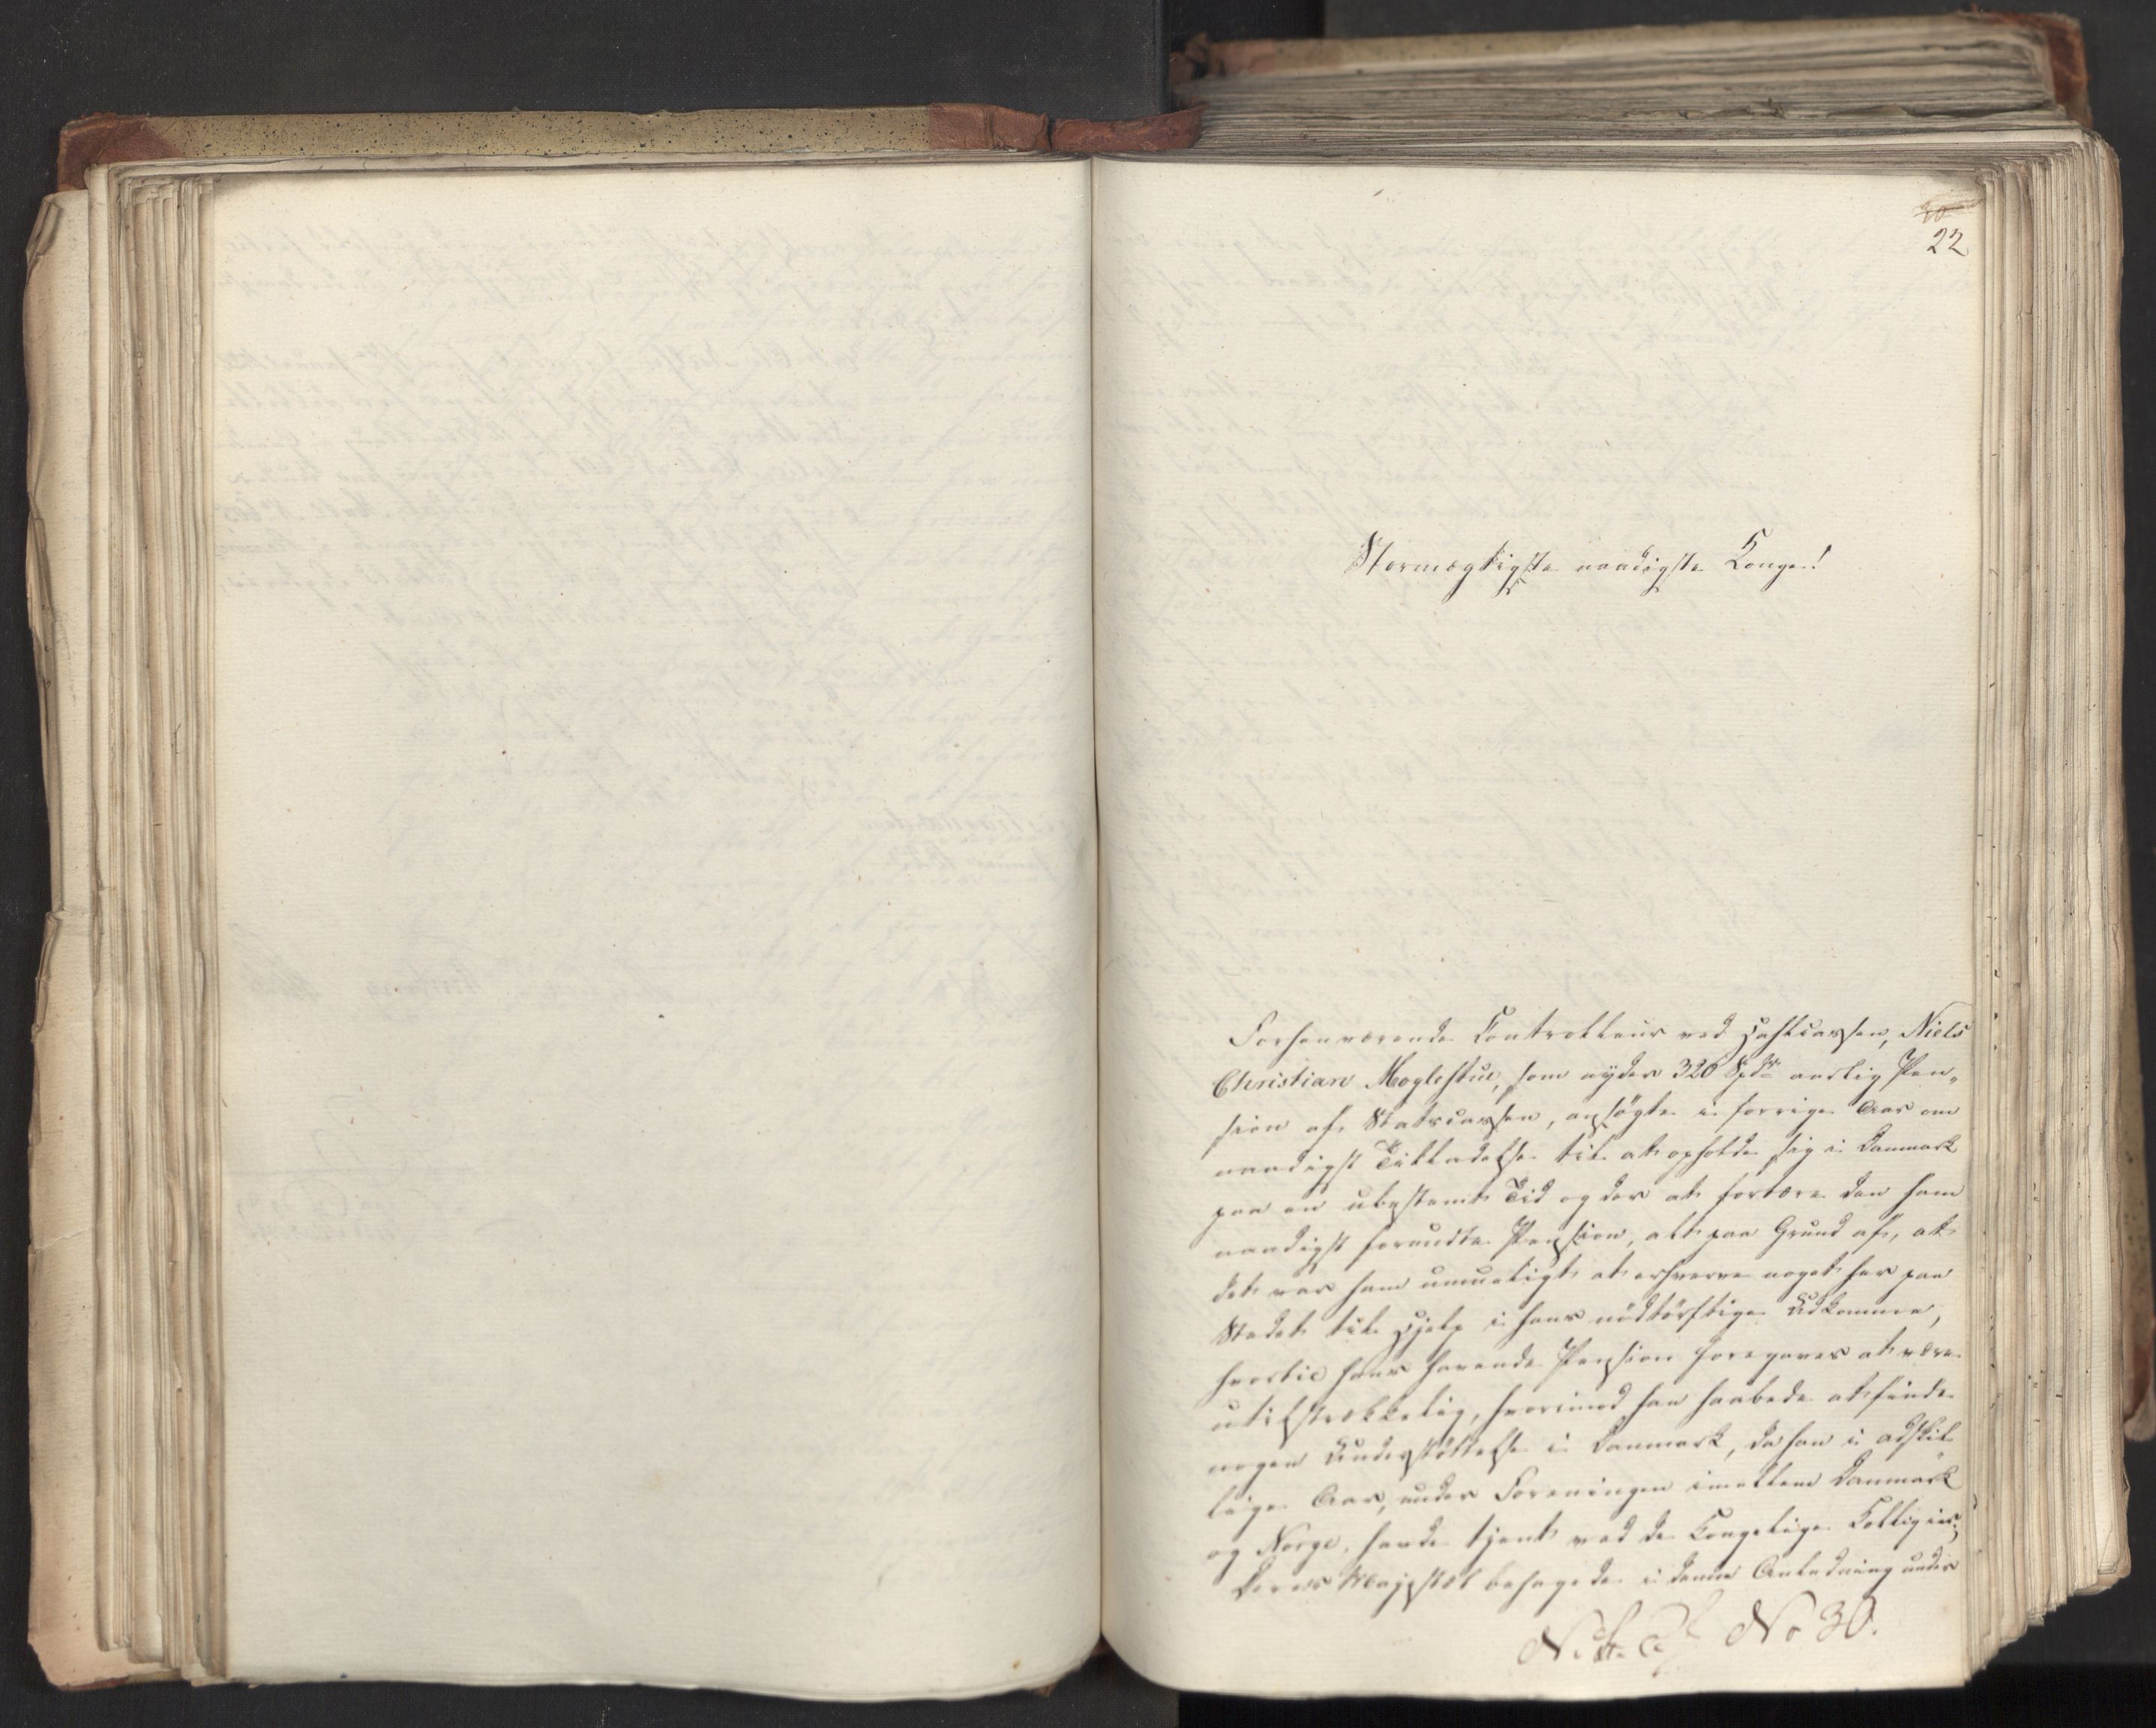 22
Stormægtigste naadigste Konge!
Forhenværende Controlleur ved Zahlcassen, Niels
Christian Moglestue, som nyder 320 Spdr aarlig Pen„
sion af Statscassen, ansøgte i forrige Aar om
naadigst Tilladelse til at opholde sig i Danmark
paa en ubestemt Tid og der at fortære den ham
naadigst forundte Pension, alt paa Grund af, at
det var ham umueligt at erhverve noget her paa
Stedet til Hjelp i hans nødtørftige Udkomme,
hvortil hans havende Pension foregaves at være
utilstrækkelig, hvorimod han haabede at finde
nogen Understøttelse i Danmark, da han i adskil
lige Aar, under Foreningen imellem Danmark
og Norge, havde tjent ved de Kongelige Collegier;
Deres Majestæt behagede i denne Anledning under
No 30.